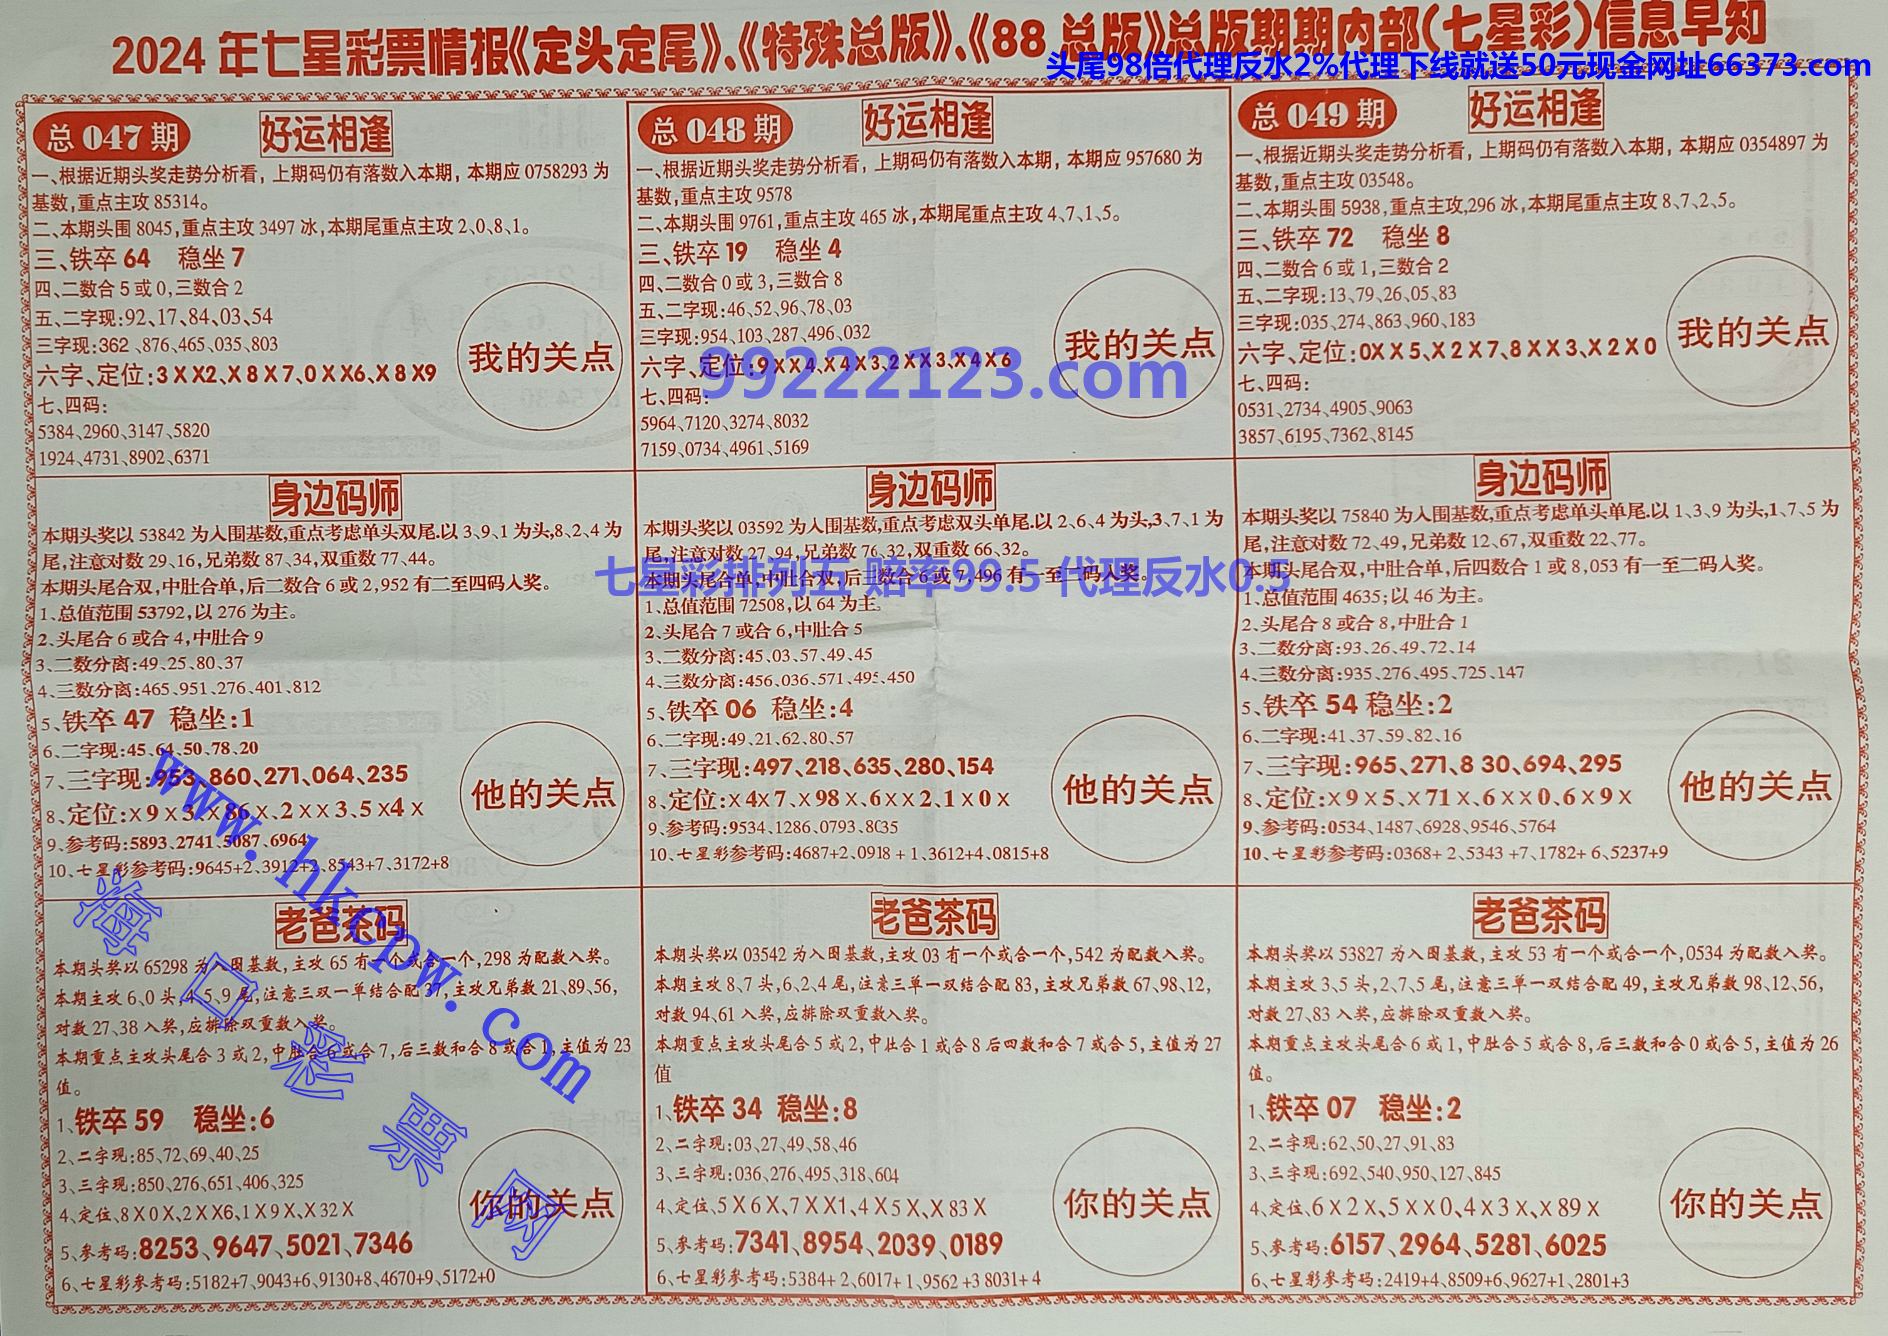 2024年七星彩票情报《定头定尾》、《特殊总版》、《88总版》总版期期内部(七星彩)信息早知
头尾98倍代理反水2%代理下线就送50元现金网址66373.com
总047期
好运相逢
一、根据近期头奖走势分析看，上期码仍有落数入本期，本期应0758293为
基数,重点主攻85314。
二、本期头围8045,重点主攻3497冰,本期尾重点主攻2、0、8、1。
三、铁卒64 稳坐7
四、二数合5或0,三数合2
五、二字现:92、17、84、03、54
三字现:362、876、465、035、803
六字、定位:3XX2、X8X7、0XX6、X8X9
七、四码:
5384、2960、3147、5820
1924、4731、8902、6371
我的关点
总048期
好运相逢
一、根据近期头奖走势分析看，上期码仍有落数入本期，本期应957680为
基数,重点主攻9578
二、本期头围9761,重点主攻465冰,本期尾重点主攻4、7、1、5。
三、铁卒19 稳坐4
四、二数合0或3,三数合8
五、二字现:46、52、96、78、03
三字现:954、103、287、496、032
六字、定位:9XX4、X4X3、2XX3、X4X6
七、四码:
5964、7120、3274、8032
7159、0734、4961、5169
我的关点
99222123.com
总049期
好运相逢
一、根据近期头奖走势分析看，上期码仍有落数入本期，本期应0354897为
基数,重点主攻03548。
二、本期头围5938,重点主攻,296冰,本期尾重点主攻8、7、2、5。
三、铁卒72 稳坐8
四、二数合6或1,三数合2
五、二字现:13、79、26、05、83
三字现:035、274、863、960、183
六字、定位:0XX5、X2X7、8XX3、X2X0
七、四码:
0531、2734、4905、9063
3857、6195、7362、8145
我的关点
身边码师
本期头奖以53842为入围基数,重点考虑单头双尾.以3、9、1为头,8、2、4为
尾,注意对数29、16,兄弟数87、34,双重数77、44。
本期头尾合双,中肚合单,后二数合6或2,952有二至四码入奖。
1、总值范围53792,以276为主。
2、头尾合6或合4,中肚合9
3、二数分离:49、25、80、37
4、三数分离:465、951、276、401、812
5、铁卒47 稳坐:1
6、二字现:45、64、50、78、20
7、三字现:953、860、271、064、235
8、定位:X9X3、X86X、2XX3、5X4X
9、参考码:5893、2741、5087、6964
10、七星彩参考码:9645+2、3912+2、8543+7、3172+8
他的关点
身边码师
本期头奖以03592为入围基数,重点考虑双头单尾.以2、6、4为头,3、7、1为
尾,注意对数27、94,兄弟数76、32,双重数66、32。
本期头尾合单,中肚合双,后三数合6或7,496有一至二码入奖。
1、总值范围72508,以64为主。
2、头尾合7或合6,中肚合5
3、二数分离:45、03、57、49、45
4、三数分离:456、036、571、495、450
5、铁卒06 稳坐:4
6、二字现:49、21、62、80、57
7、三字现:497、218、635、280、154
8、定位:X4X7、X98X、6XX2、1X0X
9、参考码:9534、1286、0793、8035
10、七星彩参考码:4687+2、0918+1、3612+4、0815+8
他的关点
七星彩排列五 赔率99.5 代理反水0.3
身边码师
本期头奖以75840为入围基数,重点考虑单头单尾.以1、3、9为头,1、7、5为
尾,注意对数72、49,兄弟数12、67,双重数22、77。
本期头尾合双,中肚合单,后四数合1或8,053有一至二码入奖。
1、总值范围4635;以46为主。
2、头尾合8或合8,中肚合1
3、二数分离:93、26、49、72、14
4、三数分离:935、276、495、725、147
5、铁卒54 稳坐:2
6、二字现:41、37、59、82、16
7、三字现:965、271、830、694、295
8、定位:X9X5、X71X、6XX0、6X9X
9、参考码:0534、1487、6928、9546、5764
10、七星彩参考码:0368+2、5343+7、1782+6、5237+9
他的关点
www.hkcpw.com
海口彩票网
老爸茶码
本期头奖以65298为入围基数,主攻65有一个或合一个,298为配数入奖。
本期主攻6、0头,4、5、9尾,注意三双一单结合配37,主攻兄弟数21、89、56,
对数27、38入奖,应排除双重数入奖。
本期重点主攻头尾合3或2,中肚合6或合7,后三数和合8或合1,主值为23
值。
1、铁卒59 稳坐:6
2、二字现:85、72、69、40、25
3、三字现:850、276、651、406、325
4、定位、8X0X、2XX6、1X9X、X32X
5、参考码:8253、9647、5021、7346
6、七星彩参考码:5182+7、9043+6、9130+8、4670+9、5172+0
你的关点
老爸茶码
本期头奖以03542为入围基数,主攻03有一个或合一个,542为配数入奖。
本期主攻8、7头,6、2、4尾,注意三单一双结合配83,主攻兄弟数67、98、12,
对数94、61入奖,应排除双重数入奖。
本期重点主攻头尾合5或2,中肚合1或合8后四数和合7或合5,主值为27
值
1、铁卒34 稳坐:8
2、二字现:03、27、49、58、46
3、三字现:036、276、495、318、604
4、定位、5X6X、7XX1、4X5X、X83X
5、参考码:7341、8954、2039、0189
6、七星彩参考码:5384+2、6017+1、9562+3 8031+4
你的关点
老爸茶码
本期头奖以53827为入围基数,主攻53有一个或合一个,0534为配数入奖。
本期主攻3、5头,2、7、5尾,注意三单一双结合配49,主攻兄弟数98、12、56,
对数27、83入奖,应排除双重数入奖。
本期重点主攻头尾合6或1,中肚合5或合8,后三数和合0或合5,主值为26
值。
1、铁卒07 稳坐:2
2、二字现:62、50、27、91、83
3、三字现:692、540、950、127、845
4、定位、6X2X、5XX0、4X3X、X89X
5、参考码:6157、2964、5281、6025
6、七星彩参考码:2419+4、8509+6、9627+1、2801+3
你的关点